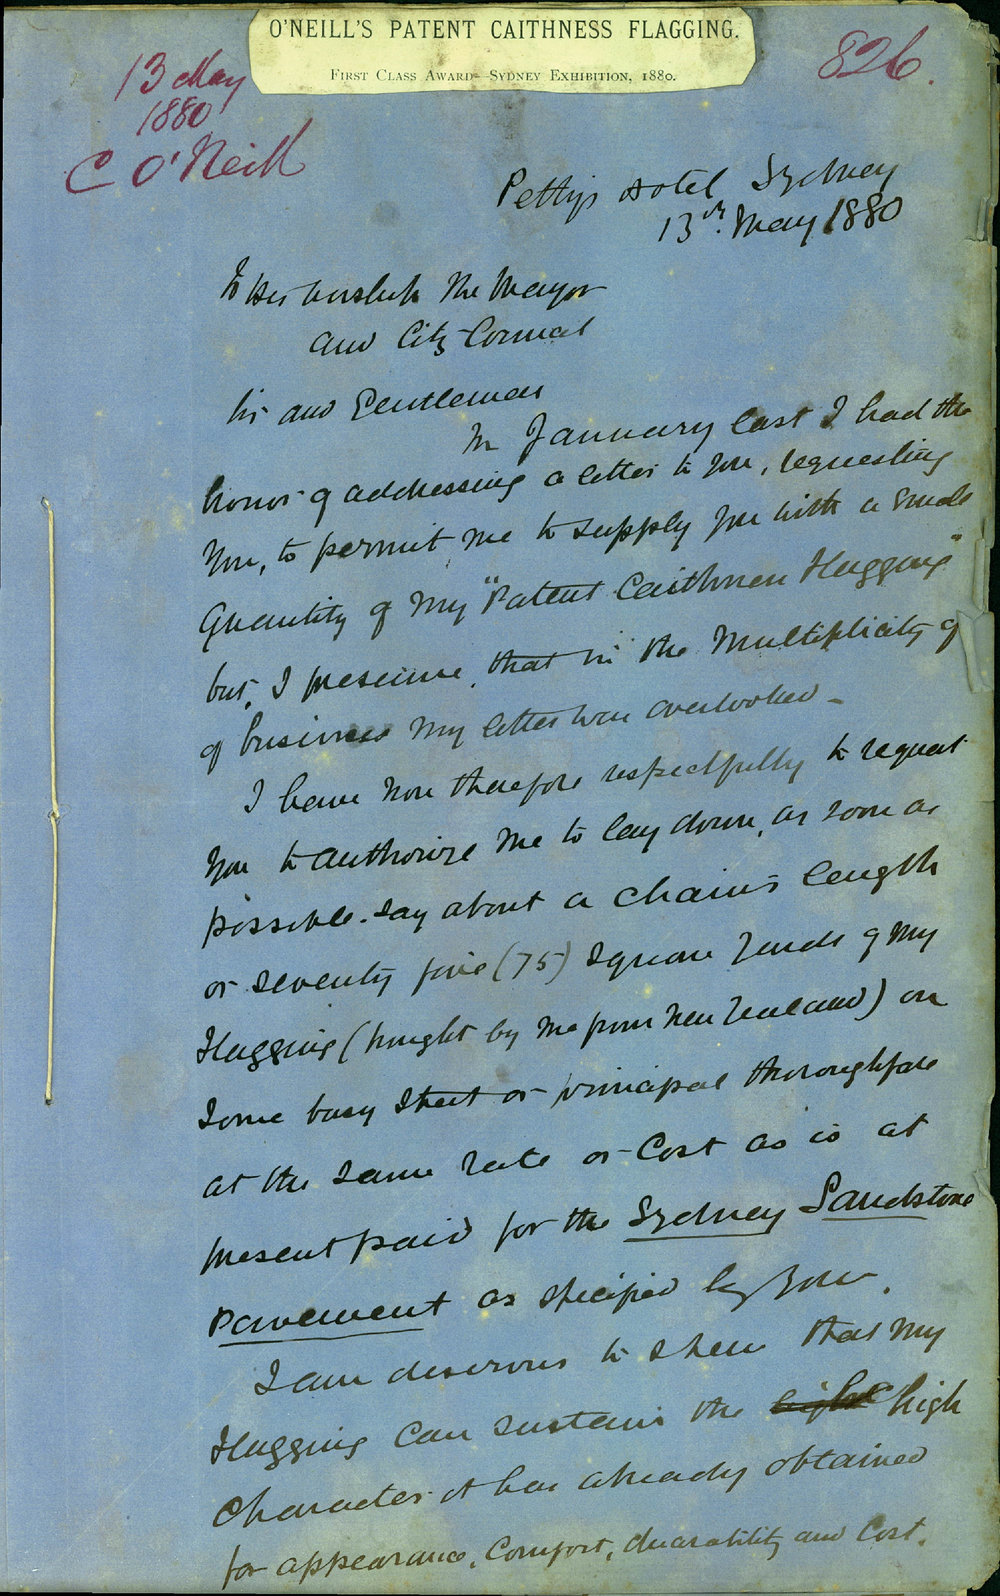 O'NEILL'S PATENT CAITHNESS FLAGGING.
FIRST CLASS AWARD—SYDNEY EXHIBITION, 1880.
826.
13 May
1880
C O'Neill
Pettys Hotel Sydney
13th. May 1880
To His Worship The Mayor
and City Council
Sir and Gentlemen
In January last I had the
honor of addressing a letter to you, requesting
you, to permit me to supply you with a small
Quantity of my "Patent Caithness Flagging"
but, I presume, that in the Multiplicity of
of business my letter was overlooked —
I have now therefore respectfully to request
you to authorize me to lay down, as soon as
possible. say about a chain's length
or seventy five (75) square yards of my
Flagging (brought by me from New Zealand) on
some busy Street or principal thoroughfare
at the same rate or Cost as is at
present paid for the Sydney Sandstone
Pavement as specified by you.
I am desirous to shew that my
Flagging can sustain the high
Character it has already obtained
for appearance, Comfort, durability and Cost.